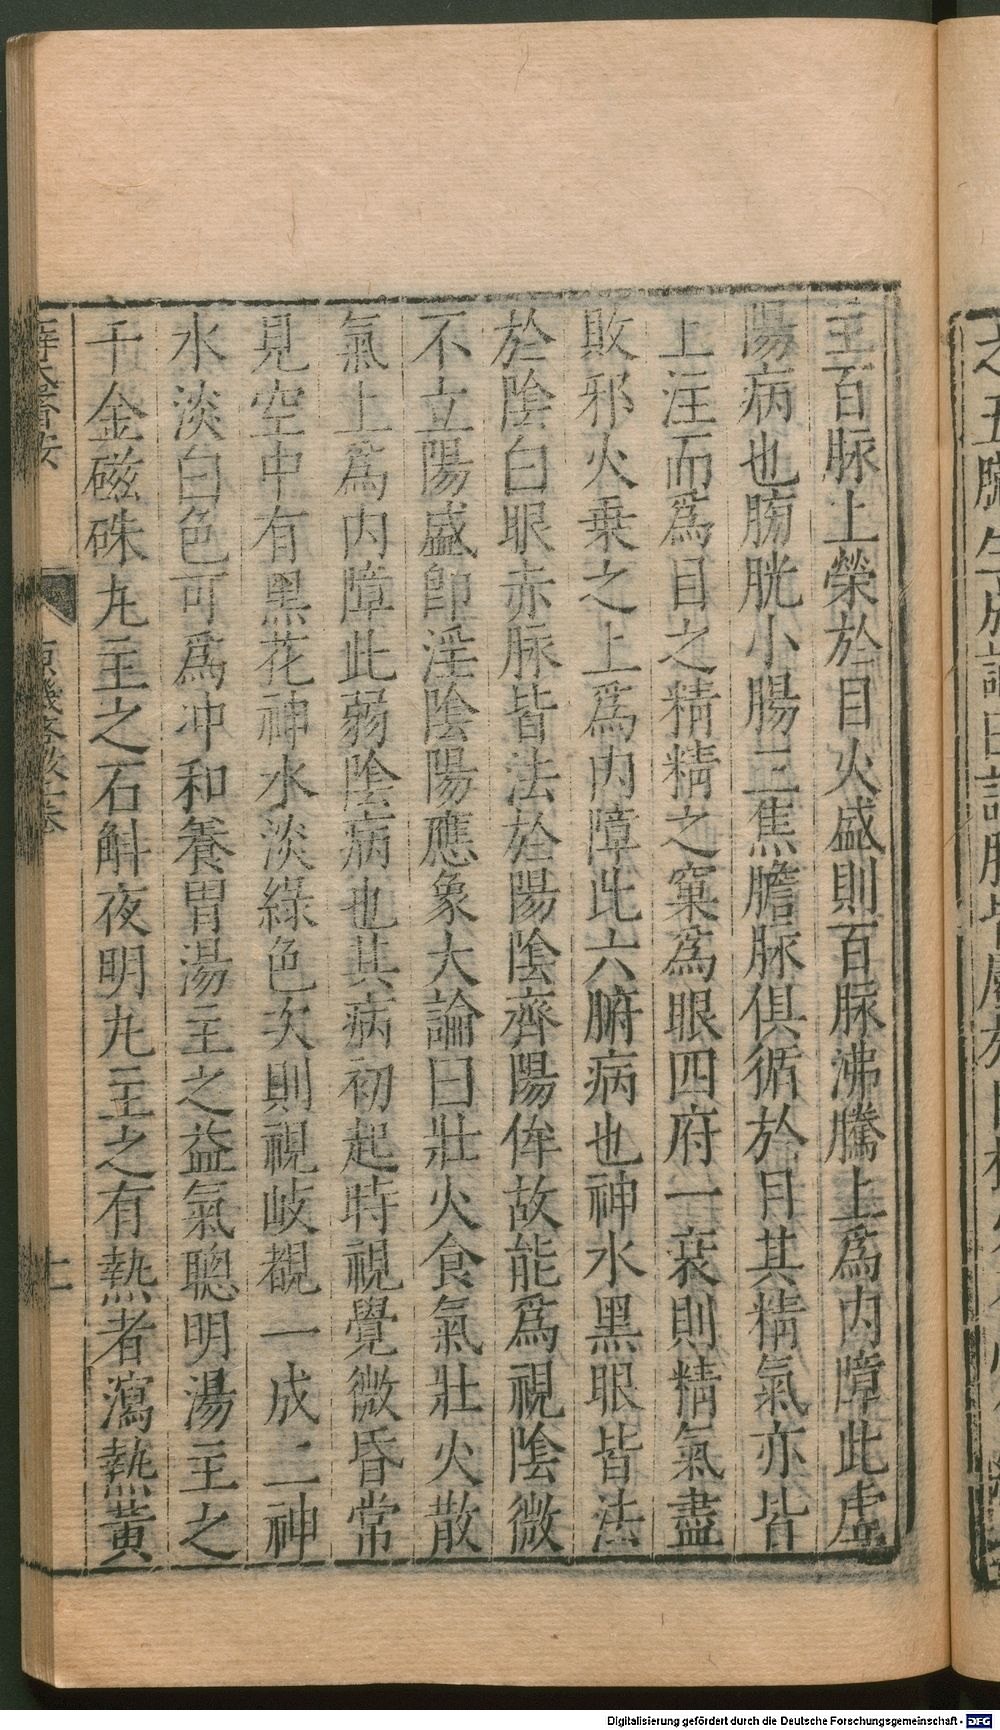 主百脉上榮於目火盛則百脉沸騰上爲内障此虛
陽病也膀胱小腸三焦膽脉俱循於目其精氣亦皆
上注而爲目之精精之窠爲眼四府一衰則精氣盡
敗邪火乗之上爲内障此六腑病也神水黑眼皆法
於陰白眼赤脉皆法於陽陰齊陽侔故能爲視陰微
不立陽盛即淫陰陽應象大論曰壯火食氣壯火散
氣上爲内障此弱陰病也其病初起時視覺微昏常
見空中有黑花神水淡綠色次則視岐覩一成二神
水淡白色可爲冲和養胃湯主之益氣聰明湯主之
千金磁硃丸主之石斛夜明丸主之有熱者瀉熱黃
薛氏醫按 原機啓微上卷 十一
Digitalisierung gefördert durch die Deutsche Forschungsgemeinschaft - DFG